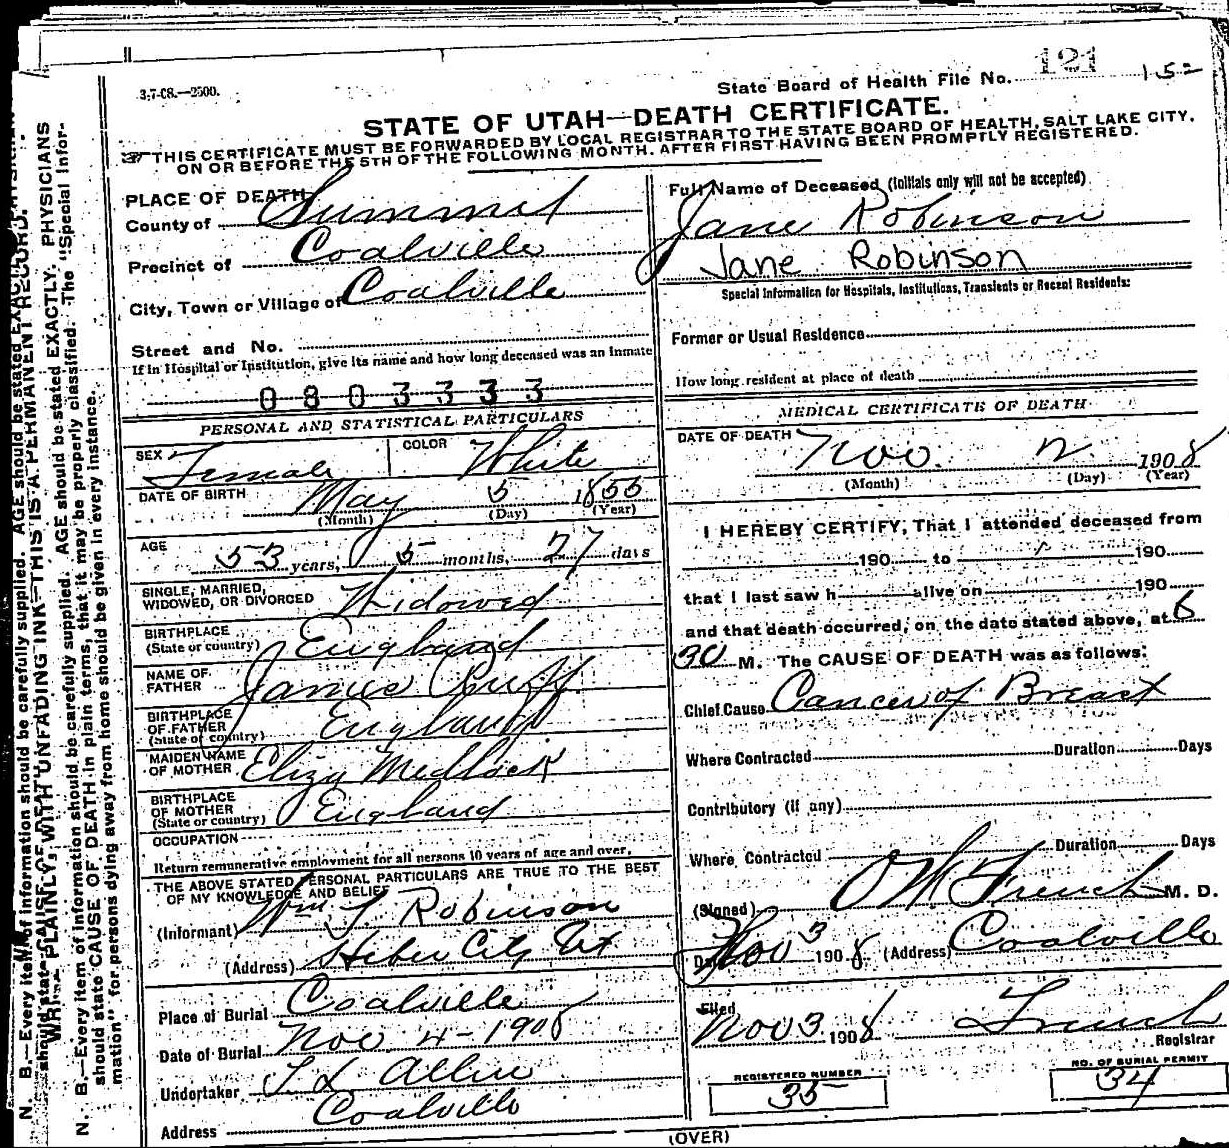 3-7-08.—2500.
State Board of Health File No. 121
STATE OF UTAH—DEATH CERTIFICATE.
THIS CERTIFICATE MUST BE FORWARDED BY LOCAL REGISTRAR TO THE STATE BOARD OF HEALTH, SALT LAKE CITY,
ON OR BEFORE THE 5TH OF THE FOLLOWING MONTH. AFTER FIRST HAVING BEEN PROMPTLY REGISTERED.
PLACE OF DEATH
County of Summit
Precinct of Coalville
City, Town or Village of Coalville
Street and No.
If in Hospital or Institution, give its name and how long deceased was an inmate
0803333
PERSONAL AND STATISTICAL PARTICULARS
SEX Female COLOR White
DATE OF BIRTH May 5 1855
(Month) (Day) (Year)
AGE 53 years, 5 months, 27 days
SINGLE, MARRIED,
WIDOWED, OR DIVORCED Widowed
BIRTHPLACE
(State or country) England
NAME OF
FATHER James
BIRTHPLACE
OF FATHER
(State or country) England
MAIDEN NAME
OF MOTHER Eliza Medlock
BIRTHPLACE
OF MOTHER
(State or country) England
OCCUPATION
Return remunerative employment for all persons 10 years of age and over.
THE ABOVE STATED PERSONAL PARTICULARS ARE TRUE TO THE BEST
OF MY KNOWLEDGE AND BELIEF
(Informant) Wm J Robinson
(Address) Heber City Ut
Place of Burial Coalville
Date of Burial Nov 4-1908
Undertaker
Address Coalville
Full Name of Deceased (Initials only will not be accepted)
Jane Robinson
Jane Robinson
Special Information for Hospitals, Institutions, Transients or Recent Residents:
Former or Usual Residence
How long resident at place of death
MEDICAL CERTIFICATE OF DEATH
DATE OF DEATH Nov. 2 1908
(Month) (Day) (Year)
I HEREBY CERTIFY, That I attended deceased from
190 to 190
that I last saw h alive on 190
and that death occurred, on the date stated above, at 6
30 M. The CAUSE OF DEATH was as follows:
Chief Cause Cancer of Breast
Where Contracted Duration Days
Contributory (if any)
Where Contracted Duration Days
(Signed) French M. D.
Date Nov 3 1908 (Address) Coalville
Filed Nov 3 1908 French
Registrar
REGISTERED NUMBER
35
NO. OF BURIAL PERMIT
34
(OVER)
WRITE PLAINLY, WITH UNFADING INK—THIS IS A PERMANENT RECORD.
N. B.—Every item of information should be carefully supplied. AGE should be stated EXACTLY. PHYSICIANS
should state CAUSE OF DEATH in plain terms, that it may be properly classified. The "Special Infor-
mation" for persons dying away from home should be given in every instance.